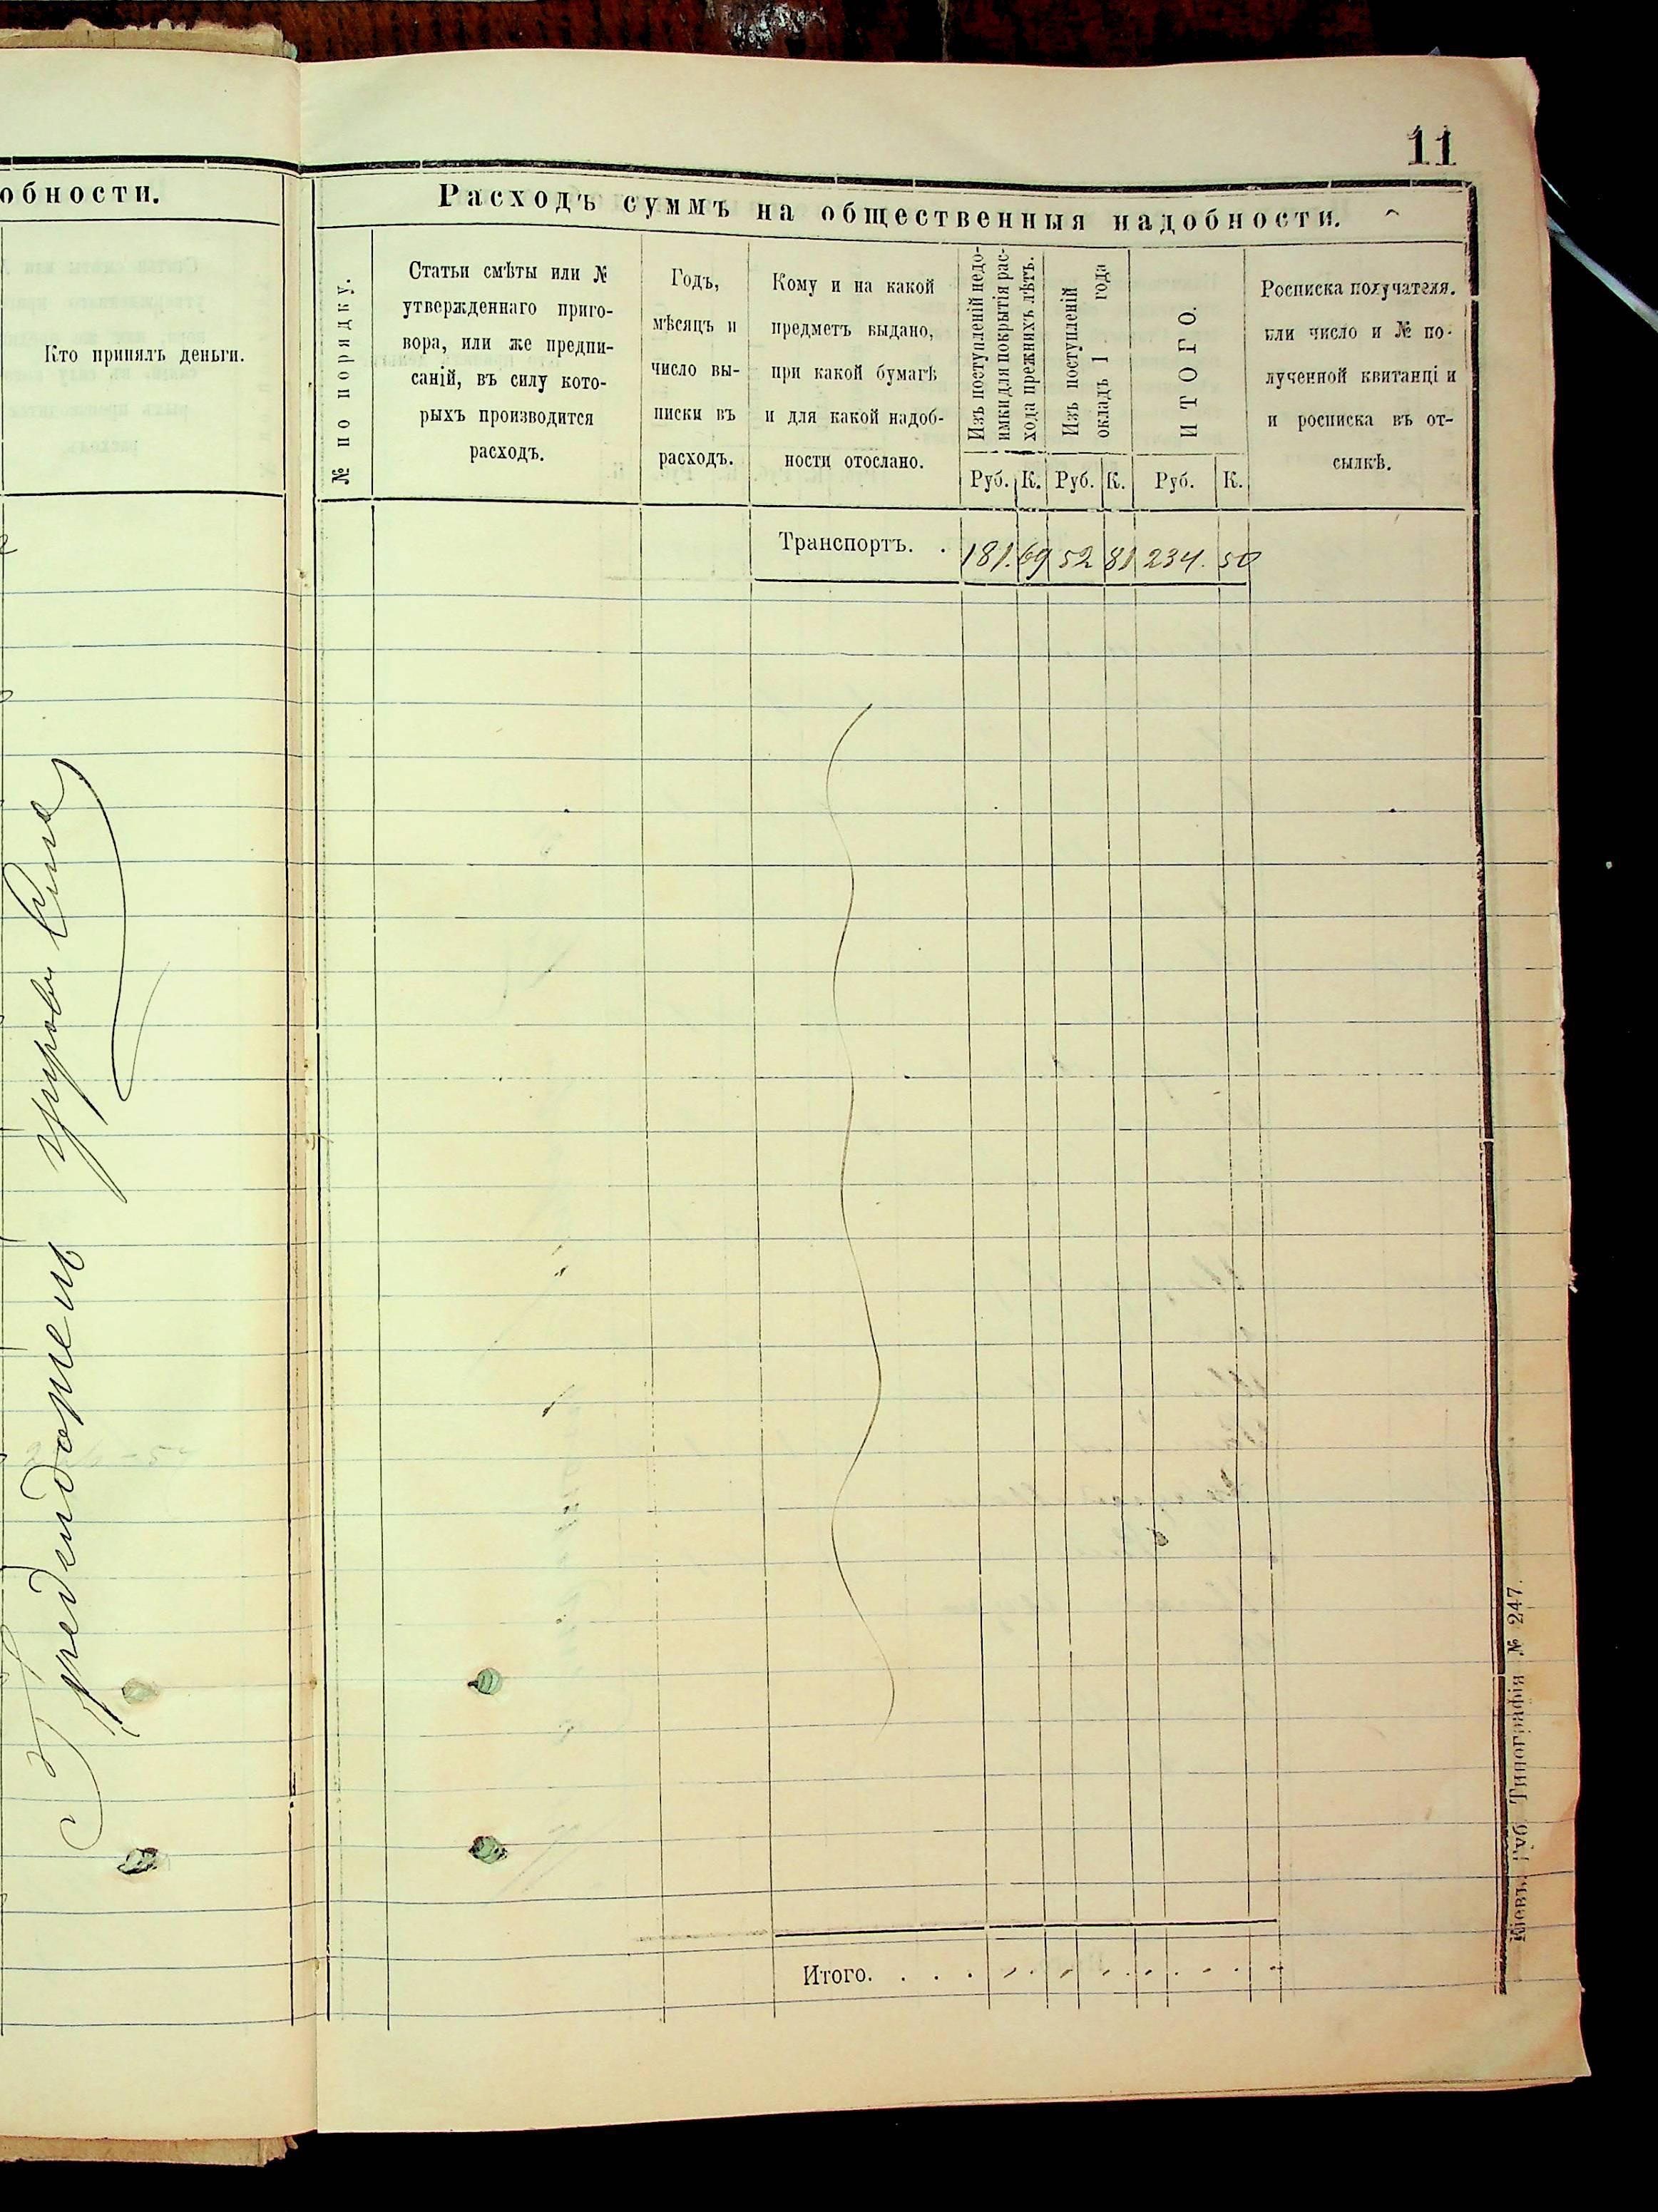 обности.
Кто принялъ деньги.
11
Расходъ суммъ на общественныя надобности.
№ по порядку.
Статьи смѣты или №
утвержденнаго приго-
вора, или же предпи-
саній, въ силу кото-
рыхъ производится
расходъ.
Годъ,
мѣсяцъ и
число вы-
писки въ
расходъ.
Кому и на какой
предметъ выдано,
при какой бумагѣ
и для какой надоб-
ности отослано.
Изъ поступленій недо-
имки для покрытія рас-
хода прежнихъ лѣтъ.
Руб. К.
Изъ поступленій
окладъ 1 года
Руб. К.
ИТОГО.
Руб. К.
Росписка получателя.
или число и № по-
лученной квитанці и
и росписка въ от-
сылкѣ.
Транспортъ. . 181. 69 52 81 234. 50
Итого. . . .
Кіевъ, Губ. Типографія № 247.